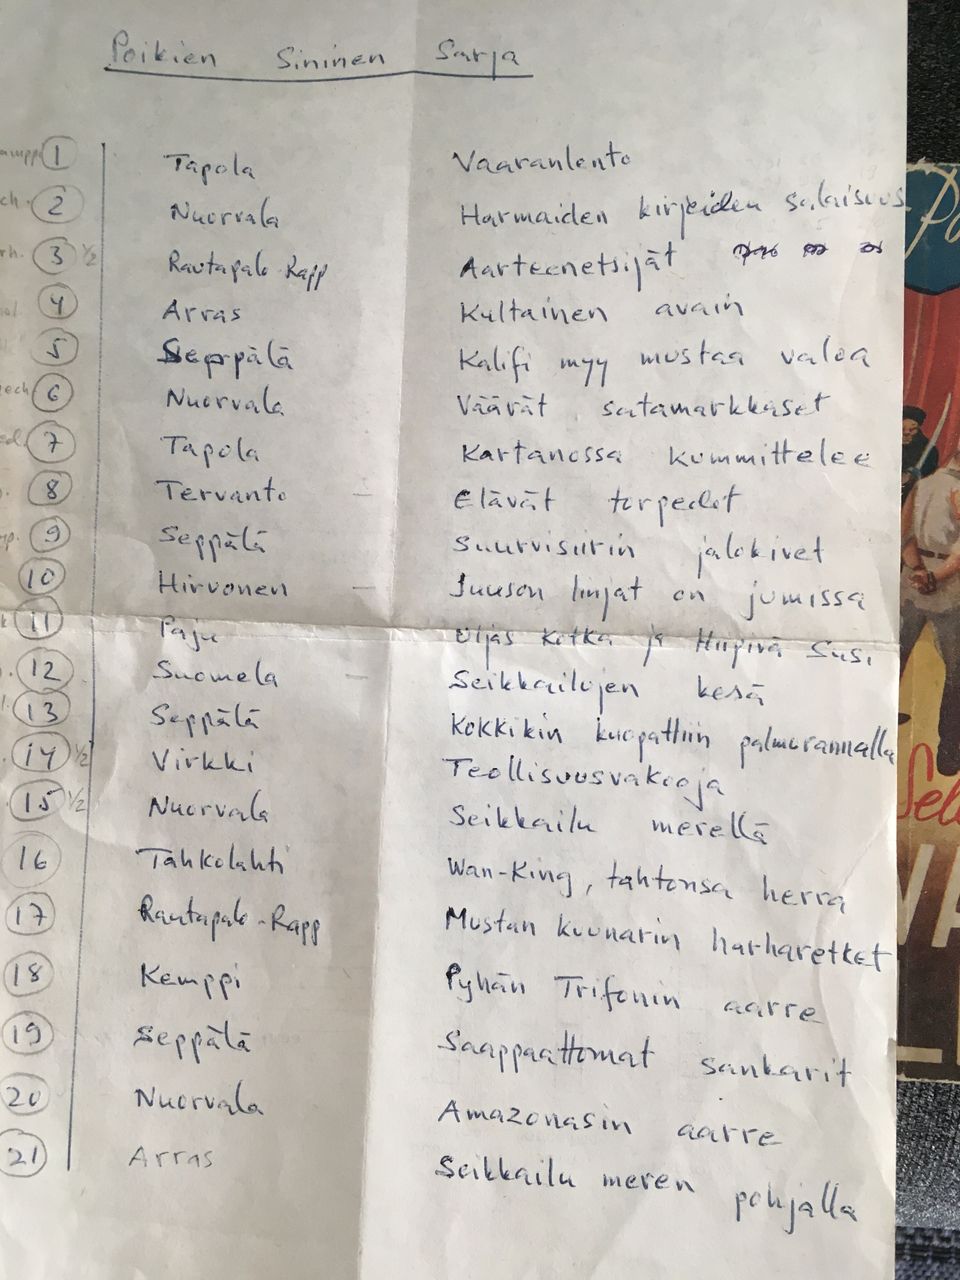 Poikien Sininen Sarja
1 Tapola Vaaranlento
2 Nuorvala Harmaiden kirjeiden salaisuus
3 ½ Rautapalo-Rapp Aarteenetsijät
4 Arras Kultainen avain
5 Seppälä Kalifi myy mustaa valoa
6 Nuorvala Väärät satamarkkaset
7 Tapola Kartanossa kummittelee
8 Tervanto – Elävät torpedot
9 Seppälä Suurvisiirin jalokivet
10 Hirvonen – Juuson linjat on jumissa
11 Paju Uljas Kotka ja Hiipivä Susi
12 Suomela – Seikkailujen kesä
13 Seppälä Kokkikin kuopattiin palmurannalla
14 ½ Virkki Teollisuusvakooja
15 ½ Nuorvala Seikkailu merellä
16 Tahkolahti Wan-King, tahtonsa herra
17 Rautapalo-Rapp Mustan kuunarin harharetket
18 Kemppi Pyhän Trifonin aarre
19 Seppälä Saappaattomat sankarit
20 Nuorvala Amazonasin aarre
21 Arras Seikkailu meren pohjalla